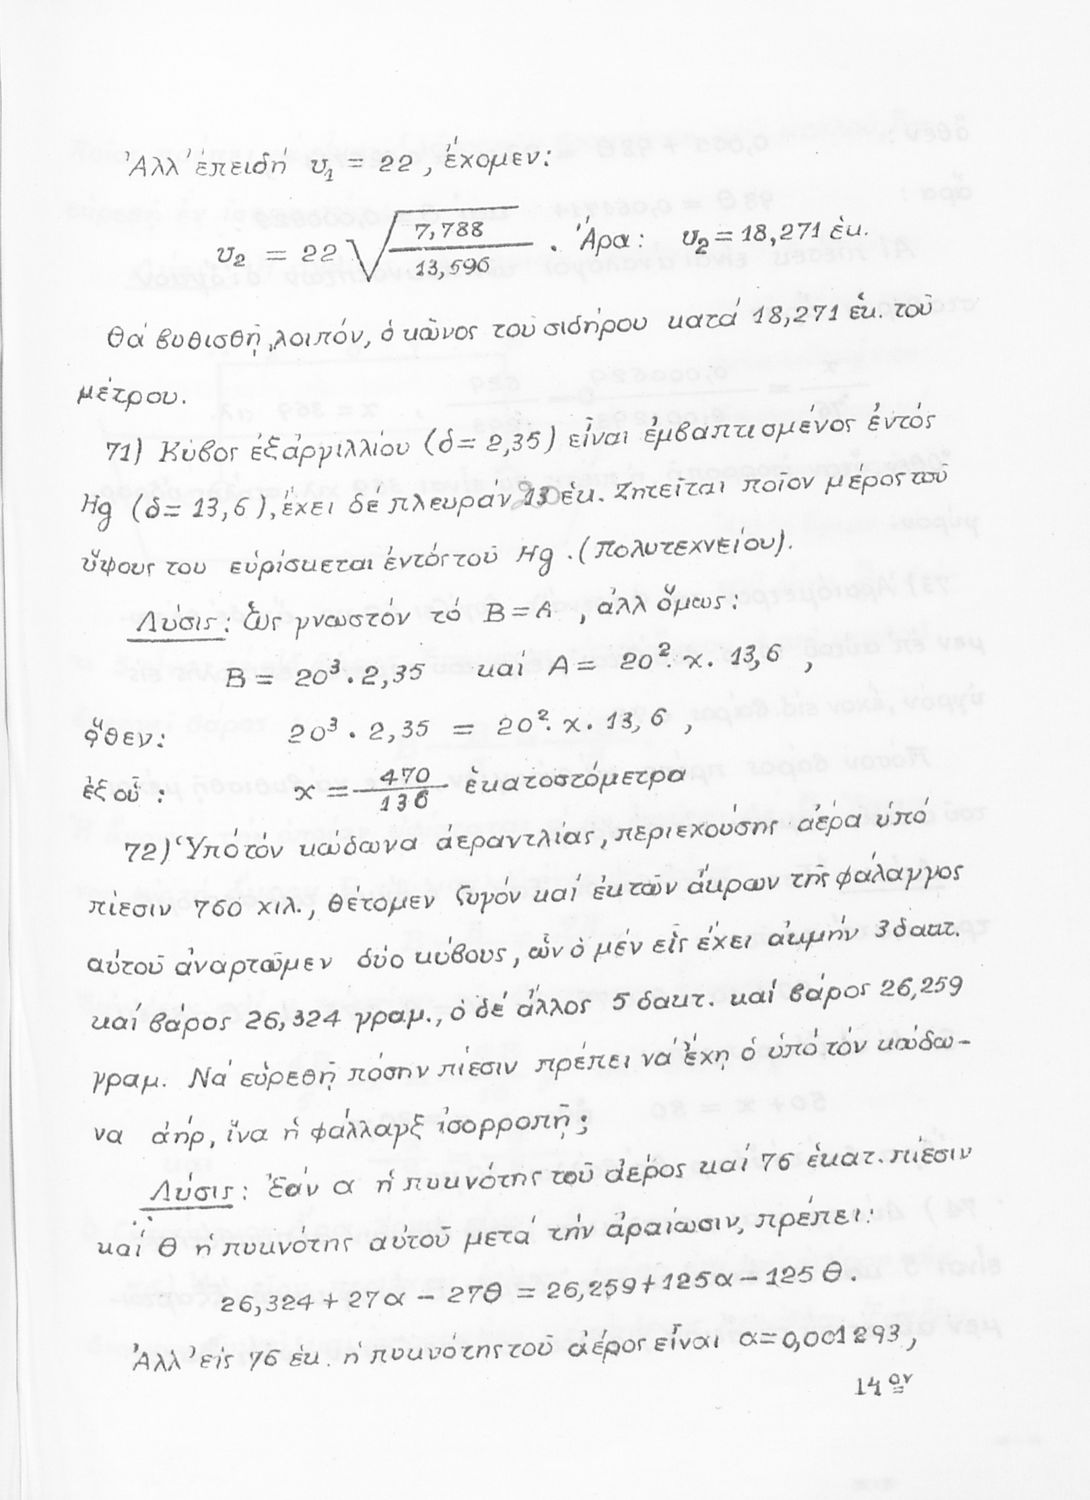 Ἀλλ' ἐπειδή υ₁ = 22, ἔχομεν:
υ₂ = 22 √(7,788 / 13,596) . Ἄρα: υ₂ = 18,271 ἑκ.
Θά βυθισθῇ, λοιπόν, ὁ κῶνος τοῦ σιδήρου κατά 18,271 ἑκ. τοῦ
μέτρου.
71) Κύβος ἐξ ἀργιλλίου (δ = 2,35) εἶναι ἐμβαπτισμένος ἐντός
Hg (δ = 13,6), ἔχει δέ πλευράν 20 ἑκ. Ζητεῖται ποῖον μέρος τοῦ
ὕψους του εὑρίσκεται ἐντός τοῦ Hg. (Πολυτεχνείου).
Λύσις: Ὡς γνωστόν τό Β = Α, ἀλλ' ὅμως:
Β = 20³ . 2,35 καί Α = 20² . x . 13,6 ,
ὅθεν: 20³ . 2,35 = 20² . x . 13,6 ,
ἐξ οὗ: x = 470/136 ἑκατοστόμετρα
72) Ὑπό τόν κώδωνα ἀεραντλίας, περιεχούσης ἀέρα ὑπό
πίεσιν 760 χιλ., θέτομεν ζυγόν καί ἐκ τῶν ἄκρων τῆς φάλαγγος
αὐτοῦ ἀναρτῶμεν δύο κύβους, ὧν ὁ μέν εἷς ἔχει ἀκμήν 3 δακτ.
καί βάρος 26,324 γραμ., ὁ δέ ἄλλος 5 δακτ. καί βάρος 26,259
γραμ. Νά εὑρεθῇ πόσην πίεσιν πρέπει νά ἔχῃ ὁ ὑπό τόν κώδω-
να ἀήρ, ἵνα ἡ φάλλαγξ ἰσορροπῇ;
Λύσις: Ἐάν α ἡ πυκνότης τοῦ ἀέρος καί 76 ἑκατ. πίεσιν
καί θ ἡ πυκνότης αὐτοῦ μετά τήν ἀραίωσιν, πρέπει:
26,324 + 27α − 27θ = 26,259 + 125α − 125θ.
Ἀλλ' εἰς 76 ἑκ. ἡ πυκνότης τοῦ ἀέρος εἶναι α = 0,001293,
14ον